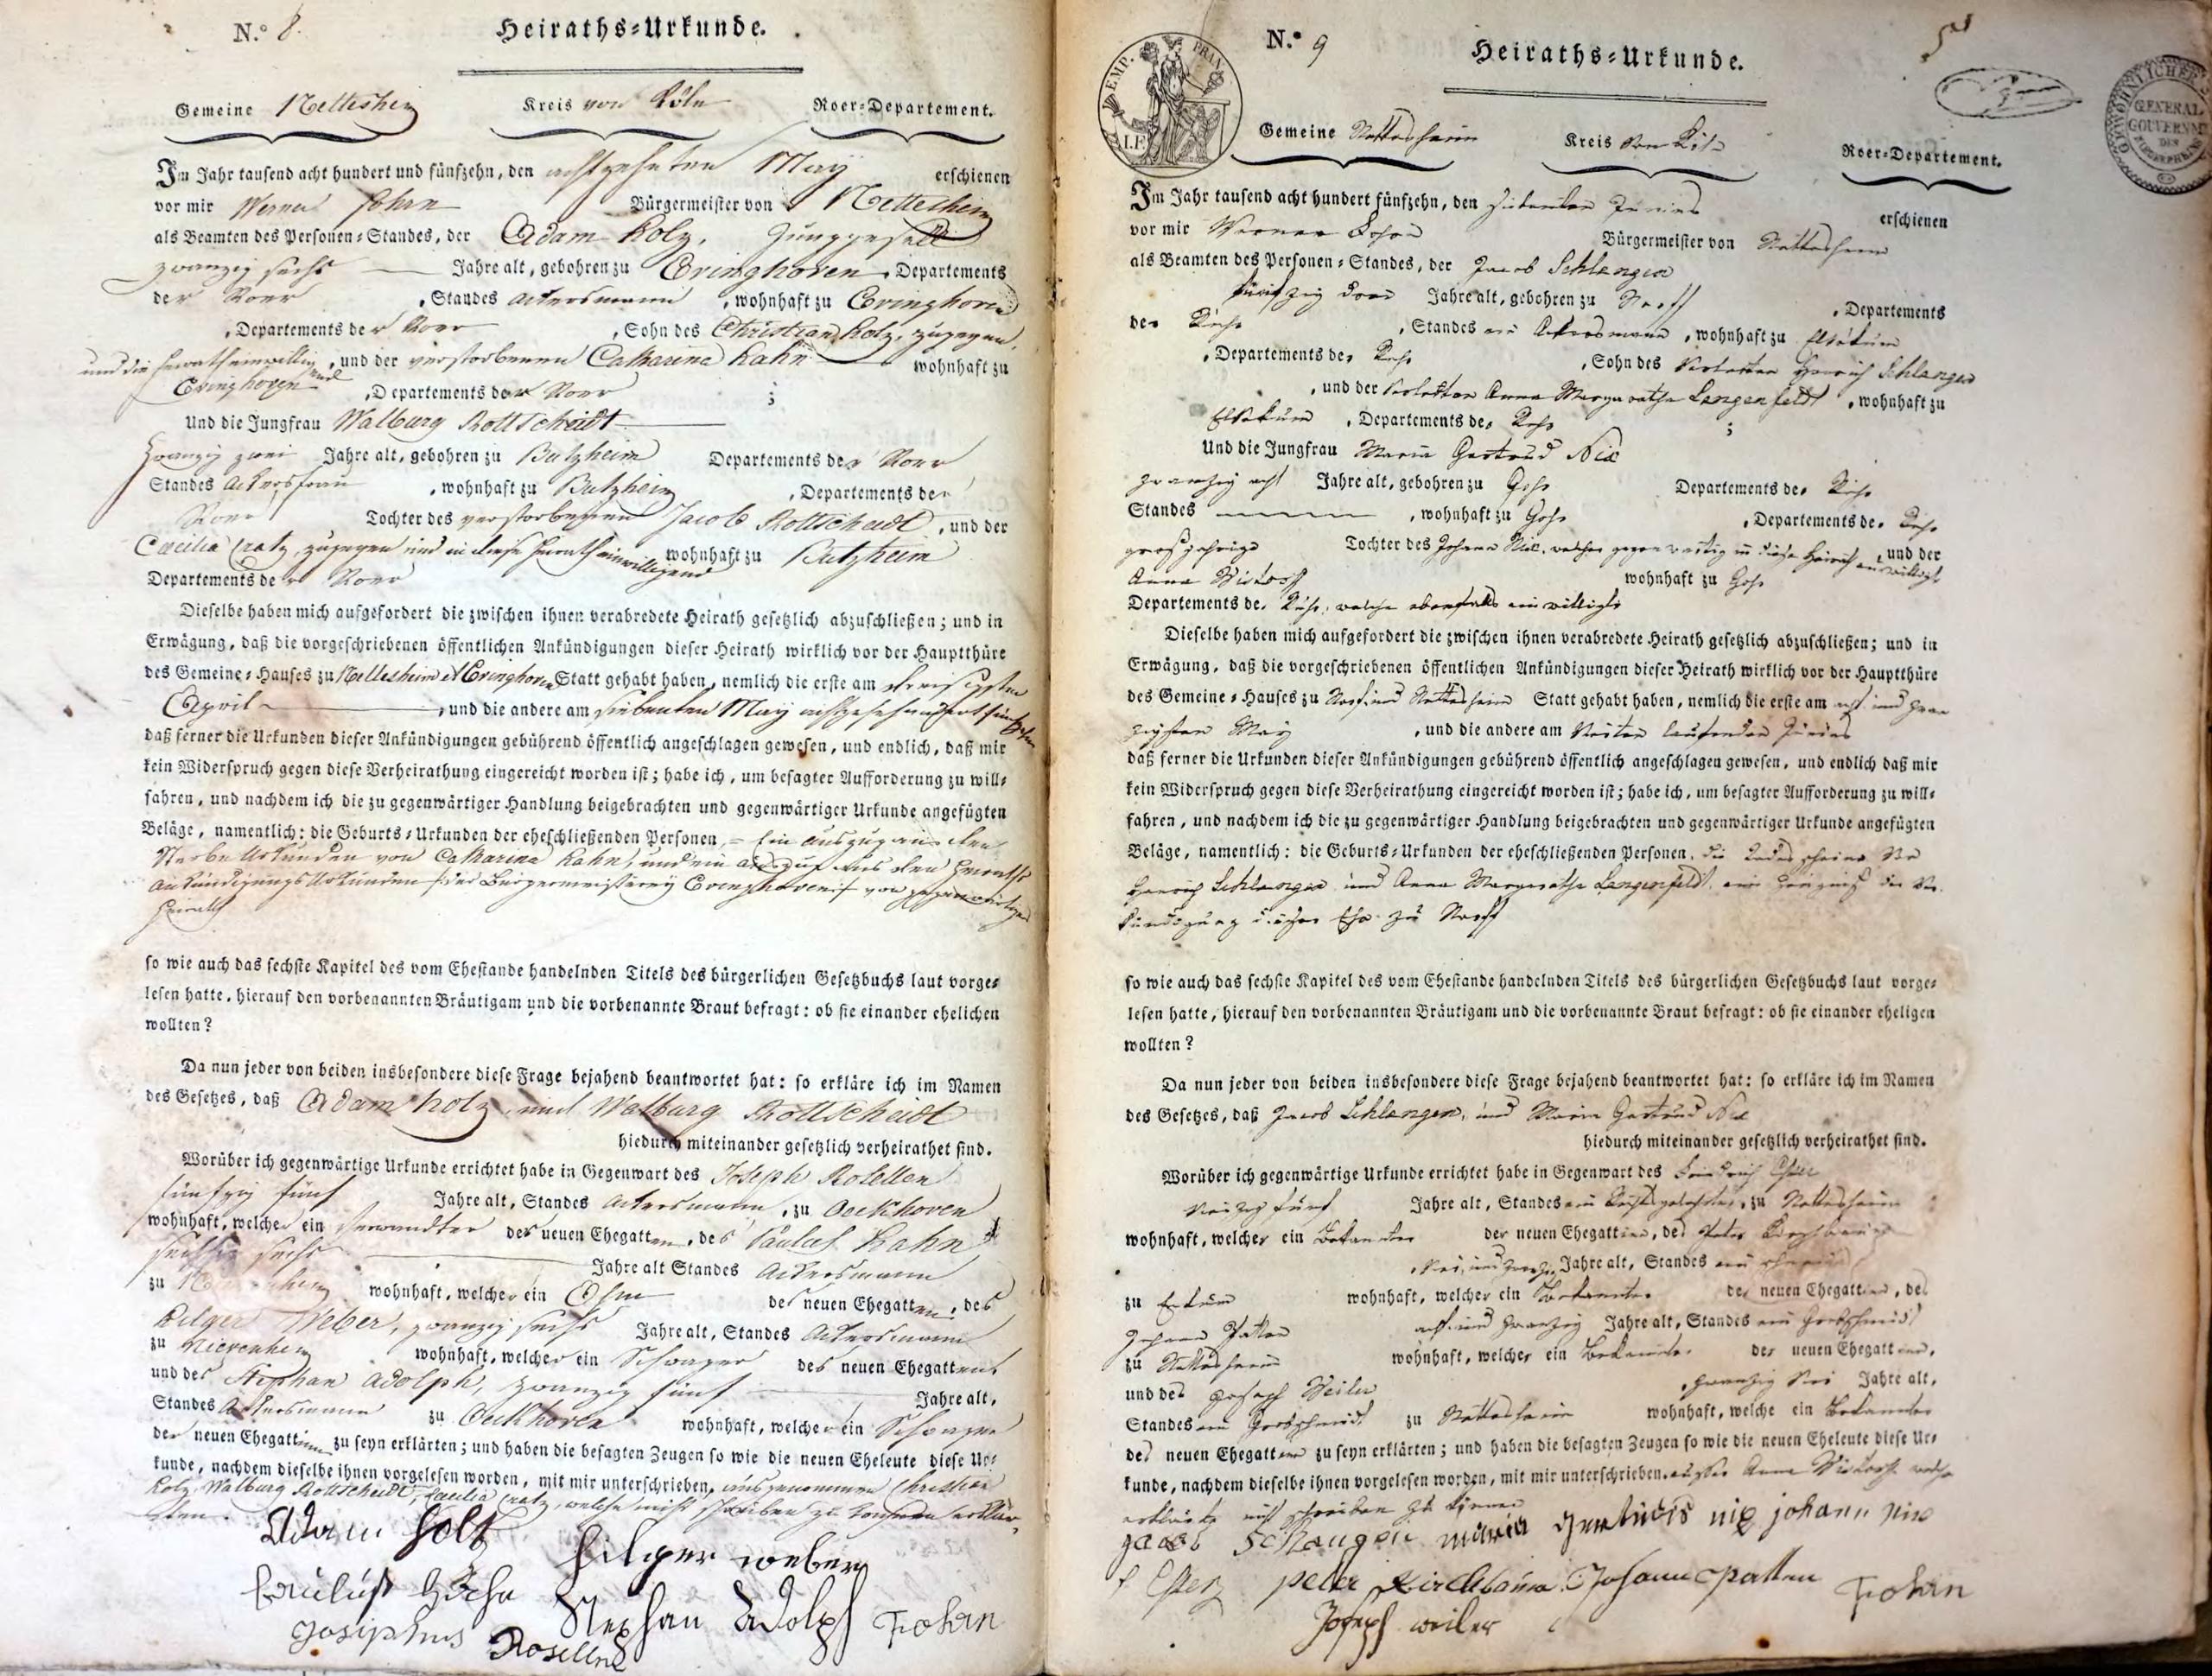 N.º 8.
Heiraths=Urkunde.
Gemeine Nettesheim Kreis von Köln Roer=Departement.
Im Jahr tausend acht hundert und fünfzehn, den achtzehnten May erschienen
vor mir Werner Johan Bürgermeister von Nettesheim
als Beamten des Personen=Standes, der Adam Holz, Junggesell
zwanzig sechs Jahre alt, gebohren zu Evinghoven, Departements
der Roer, Standes Ackersmann, wohnhaft zu Evinghoven
, Departements der Roer, Sohn des Christian Holz, zugegen,
und die heurath einwilligend, und der verstorbenen Catharina Hahn wohnhaft zu
Evinghoven, Departements der Roer ;
Und die Jungfrau Walburg Rottscheidt
zwanzig zwei Jahre alt, gebohren zu Butzheim Departements der Roer
Standes Ackersfrau, wohnhaft zu Butzheim, Departements der
Roer Tochter des verstorbenen Jacob Rottscheidt, und der
Caecilia Cratz, zugegen und in diese heurath einwilligend wohnhaft zu Butzheim
Departements der Roer
Dieselbe haben mich aufgefordert die zwischen ihnen verabredete Heirath gesetzlich abzuschließen; und in
Erwägung, daß die vorgeschriebenen öffentlichen Ankündigungen dieser Heirath wirklich vor der Hauptthüre
des Gemeine=Hauses zu Nettesheim et Evinghoven Statt gehabt haben, nemlich die erste am dreisigsten
April, und die andere am siebenten May achtzehnhundert fünfzehn
daß ferner die Urkunden dieser Ankündigungen gebührend öffentlich angeschlagen gewesen, und endlich, daß mir
kein Widerspruch gegen diese Verheirathung eingereicht worden ist; habe ich, um besagter Aufforderung zu will=
fahren, und nachdem ich die zu gegenwärtiger Handlung beigebrachten und gegenwärtiger Urkunde angefügten
Beläge, namentlich: die Geburts=Urkunden der eheschließenden Personen, = Ein auszug aus den
Sterbe Urkunden von Catharina Hahn, und ein auszug aus den Heuraths
ankündigungs Urkunden der Bürgermeisterey Evinghoven von gegenwärtiger
Heirath
so wie auch das sechste Kapitel des vom Ehestande handelnden Titels des bürgerlichen Gesetzbuchs laut vorge=
lesen hatte, hierauf den vorbenannten Bräutigam und die vorbenannte Braut befragt: ob sie einander ehelichen
wollten?
Da nun jeder von beiden insbesondere diese Frage bejahend beantwortet hat: so erkläre ich im Namen
des Gesetzes, daß Adam Holz und Walburg Rottscheidt
hiedurch miteinander gesetzlich verheirathet sind.
Worüber ich gegenwärtige Urkunde errichtet habe in Gegenwart des Joseph Rosellen
fünfzig fünf Jahre alt, Standes Ackersmann, zu Oeckhoven
wohnhaft, welcher ein Verwandter des neuen Ehegatten, des Paulus Hahn
sechzig sechs Jahre alt Standes Ackersmann
zu wohnhaft, welcher ein Ohm des neuen Ehegatten, des
Hilger Weber, zwanzig sechs Jahre alt, Standes Ackersmann
zu Nievenheim wohnhaft, welcher ein Schwager des neuen Ehegatten,
und des Stephan Adolph, zwanzig fünf Jahre alt,
Standes Ackersmann zu Oeckhoven wohnhaft, welcher ein Schwager
der neuen Ehegattinn zu seyn erklärten; und haben die besagten Zeugen so wie die neuen Eheleute diese Ur=
kunde, nachdem dieselbe ihnen vorgelesen worden, mit mir unterschrieben, ausgenommen Christian
Holz, Walburg Rottscheidt, Caecilia Cratz, welche nicht schreiben zu können erklär=
ten.
Adam Holtz Hilger weber
Paulus Hahn Stephan Adolph Johan
Josephus Rosellen
EMP. FRAN.
N.º 9
Heiraths=Urkunde.
GENERAL
GOUVERNMT
Gemeine Nettesheim Kreis von Köln Roer=Departement.
Im Jahr tausend acht hundert fünfzehn, den siebenten Junius erschienen
vor mir Werner Johan Bürgermeister von Nettesheim
als Beamten des Personen=Standes, der Jacob Schlangen
Jahre alt, gebohren zu Norff, Departements
der Ruhr, Standes ein Ackersmann, wohnhaft zu Elsekum
, Departements der Ruhr, Sohn des Henrich Schlangen
, und der Anna Margaretha Langenfeldt, wohnhaft zu
Elsekum, Departements der Ruhr ;
Und die Jungfrau Maria Gertrud Nix
zwanzig acht Jahre alt, gebohren zu Gohr Departements der Ruhr
Standes, wohnhaft zu Gohr, Departements der Ruhr
großjährige Tochter des Johann Nix, welcher gegenwärtig in diese Heirath einwilligt, und der
Anna wohnhaft zu Gohr
Departements der Ruhr, welche ebenfalls einwilligt
Dieselbe haben mich aufgefordert die zwischen ihnen verabredete Heirath gesetzlich abzuschließen; und in
Erwägung, daß die vorgeschriebenen öffentlichen Ankündigungen dieser Heirath wirklich vor der Hauptthüre
des Gemeine=Hauses zu Norf und Nettesheim Statt gehabt haben, nemlich die erste am acht und zwan
zigsten May, und die andere am laufenden Junius
daß ferner die Urkunden dieser Ankündigungen gebührend öffentlich angeschlagen gewesen, und endlich daß mir
kein Widerspruch gegen diese Verheirathung eingereicht worden ist; habe ich, um besagter Aufforderung zu will=
fahren, und nachdem ich die zu gegenwärtiger Handlung beigebrachten und gegenwärtiger Urkunde angefügten
Beläge, namentlich: die Geburts=Urkunden der eheschließenden Personen, die Todes scheine
Henrich Schlangen und Anna Margaretha Langenfeldt, ein Zeugniß der Ver
kündigung dieser Ehe zu Norff
so wie auch das sechste Kapitel des vom Ehestande handelnden Titels des bürgerlichen Gesetzbuchs laut vorge=
lesen hatte, hierauf den vorbenannten Bräutigam und die vorbenannte Braut befragt: ob sie einander eheligen
wollten?
Da nun jeder von beiden insbesondere diese Frage bejahend beantwortet hat: so erkläre ich im Namen
des Gesetzes, daß Jacob Schlangen, und Maria Gertrud Nix
hiedurch miteinander gesetzlich verheirathet sind.
Worüber ich gegenwärtige Urkunde errichtet habe in Gegenwart des
fünf Jahre alt, Standes ein, zu Nettesheim
wohnhaft, welcher ein Bekannter der neuen Ehegattinn, des Peter
Jahre alt, Standes ein
zu wohnhaft, welcher ein Bekannter der neuen Ehegattinn, des
Johann Patten acht und zwanzig Jahre alt, Standes ein Grobschmid
zu Nettesheim wohnhaft, welcher ein Bekannter der neuen Ehegattinn,
und des Joseph Weiler, zwanzig Jahre alt,
Standes ein Grobschmid zu Nettesheim wohnhaft, welche ein Bekannter
der neuen Ehegattinn zu seyn erklärten; und haben die besagten Zeugen so wie die neuen Eheleute diese Ur=
kunde, nachdem dieselbe ihnen vorgelesen worden, mit mir unterschrieben, außer Anna welche
erklärte nicht schreiben zu können
Jacob Schlangen maria gertrudis nix johann nix
peter Johann patten Johan
Joseph weiler